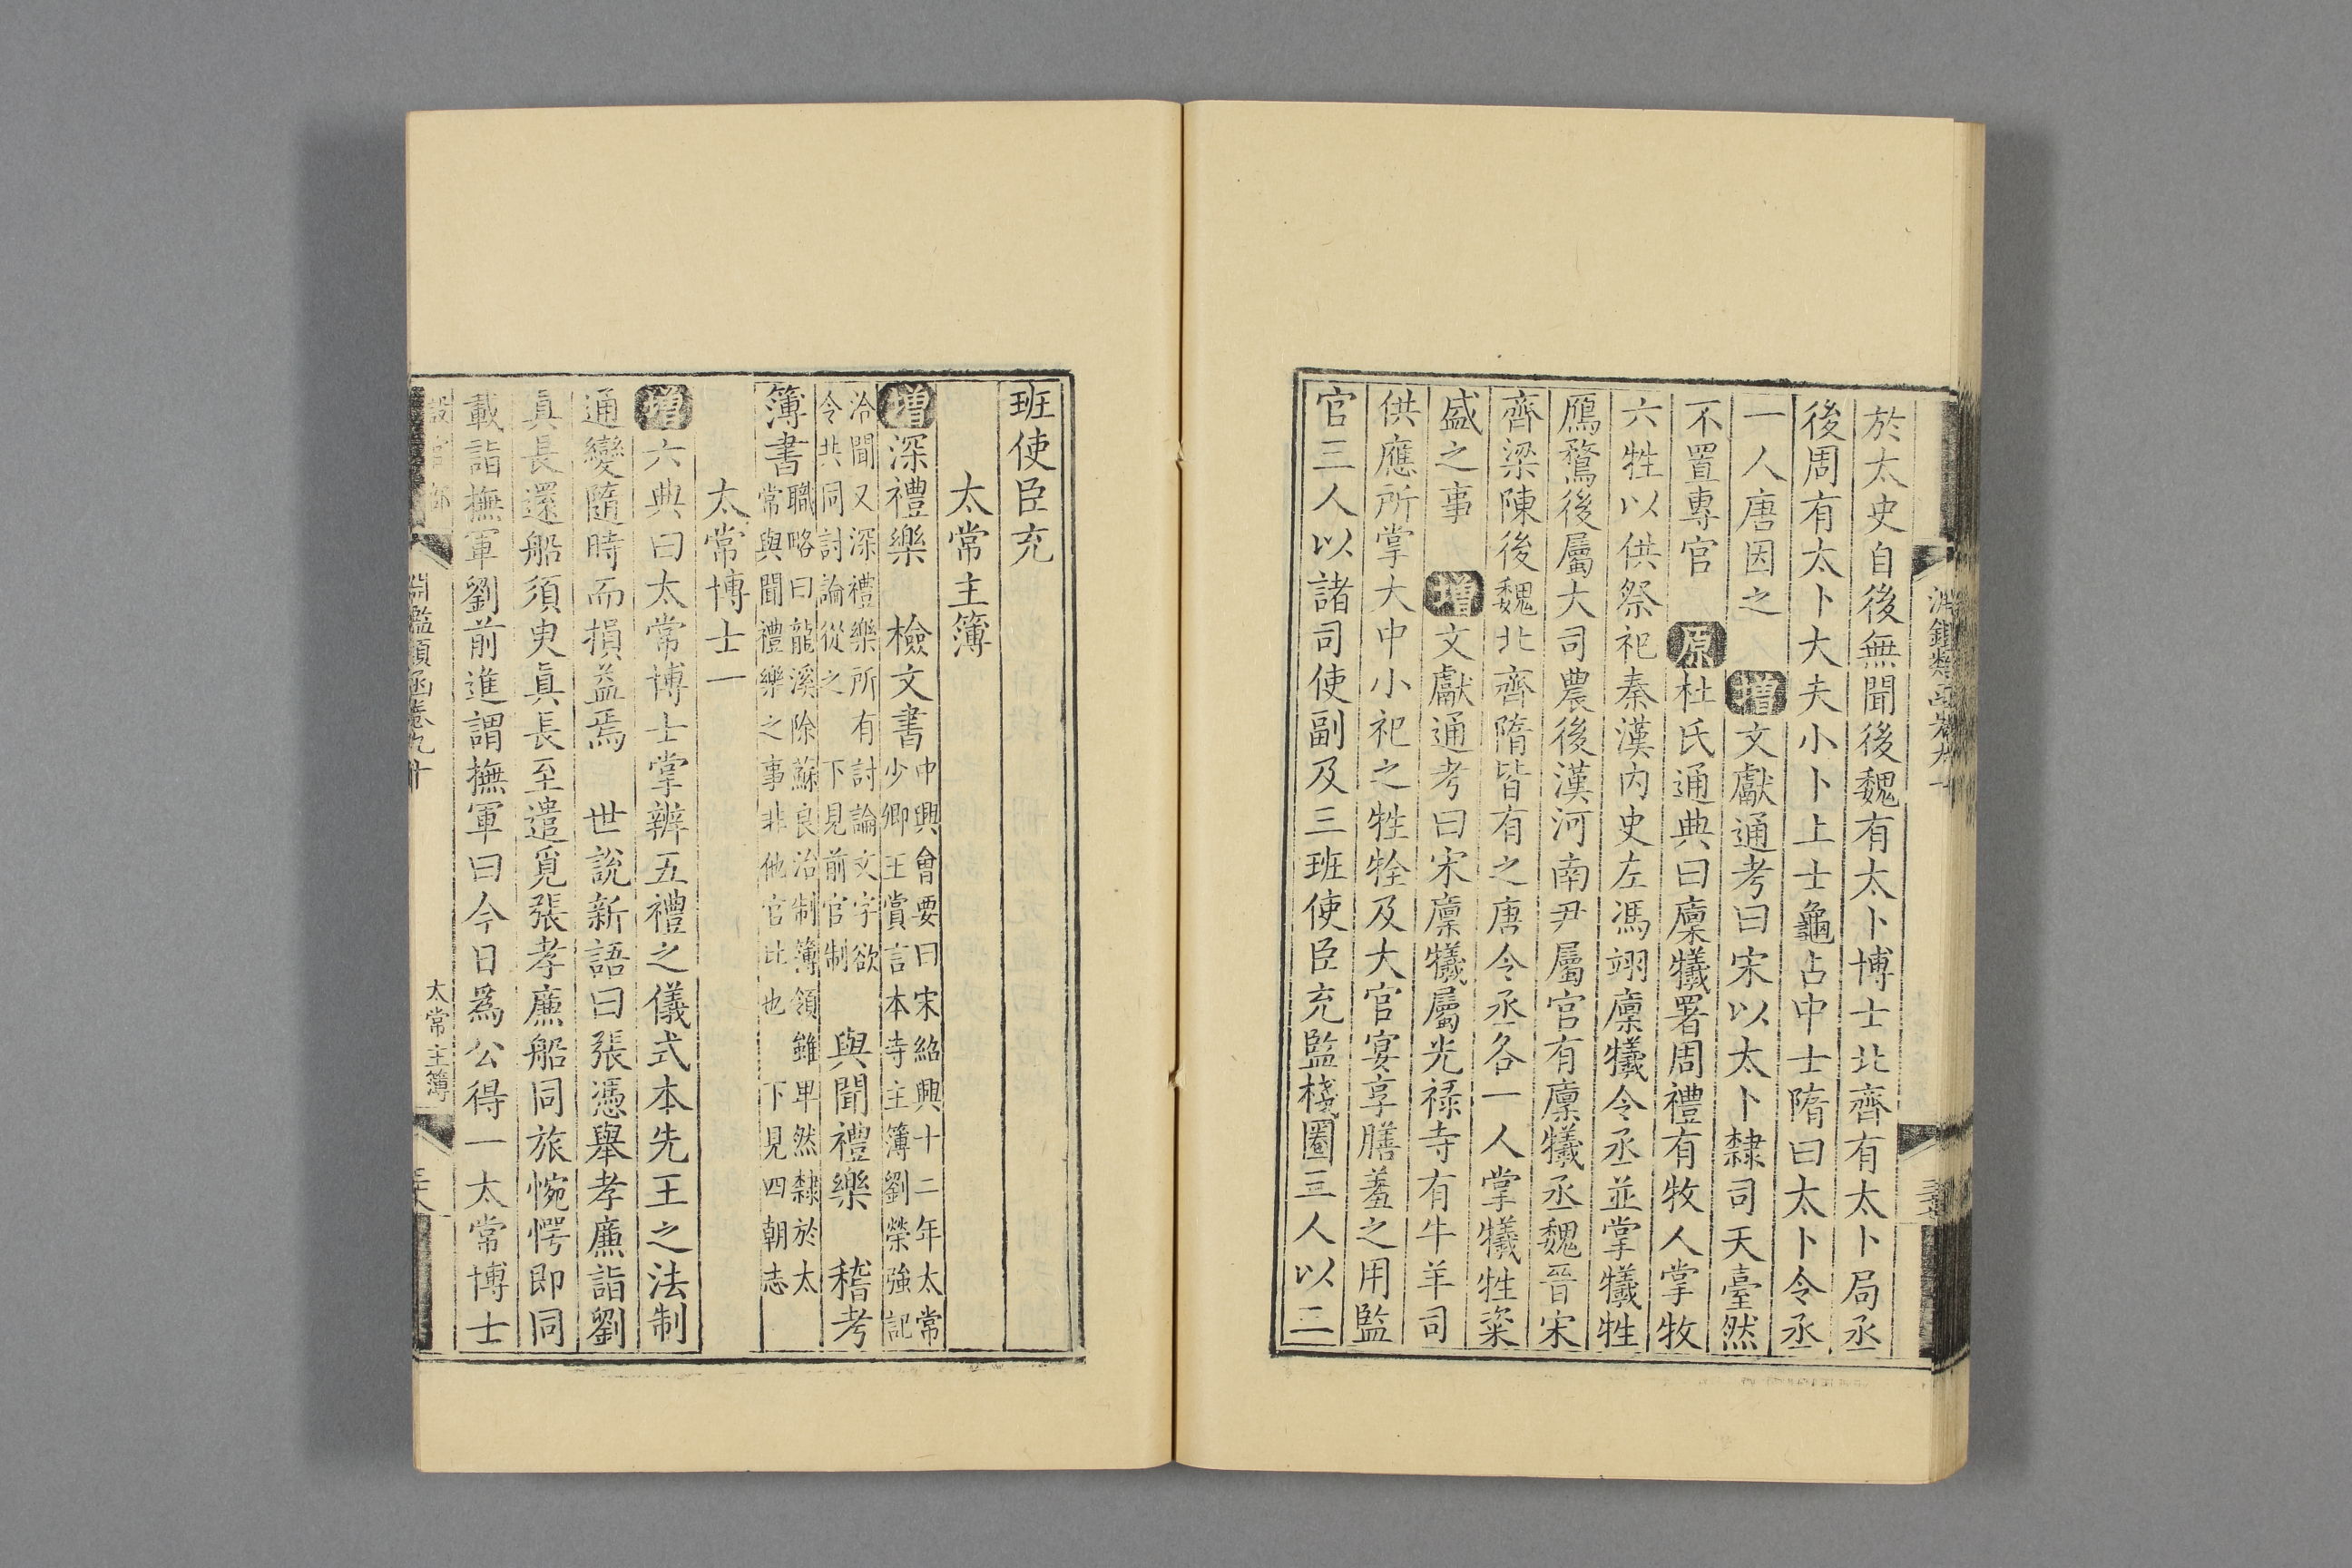 於太史自後無聞後魏有太卜博士北齊有太卜局丞
後周有太卜大夫小卜上士龜占中士隋曰太卜令丞
一人唐因之 增文獻通考曰宋以太卜隸司天臺然
不置專官 原杜氏通典曰廩犧署周禮有牧人掌牧
六牲以供祭祀秦漢内史左馮翊廩犧令丞並掌犧牲
鴈鶩後屬大司農後漢河南尹屬官有廩犧丞魏晉宋
齊梁陳後魏北齊隋皆有之唐令丞各一人掌犧牲粢
盛之事 增文獻通考曰宋廩犧屬光禄寺有牛羊司
供應所掌大中小祀之牲牷及大官宴享膳羞之用監
官三人以諸司使副及三班使臣充監棧圈三人以二
班使臣充
太常主簿
增深禮樂 檢文書中興會要曰宋紹興十二年太常少卿王賞言本寺主簿劉榮強記
洽聞又深禮樂所有討論文字欲令共同討論從之 下見前官制 與聞禮樂 稽考
簿書職略曰龍溪除蘇良治制簿領雖卑然隸於太常與聞禮樂之事非他官比也 下見四朝志
太常博士一
增六典曰太常博士掌辨五禮之儀式本先王之法制
通變隨時而損益焉 世說新語曰張憑舉孝廉詣劉
真長還船須臾真長至遣覓張孝廉船同旅惋愕即同
載詣撫軍劉前進謂撫軍曰今日爲公得一太常博士
設官部 淵鑑類函卷九十 太常主簿